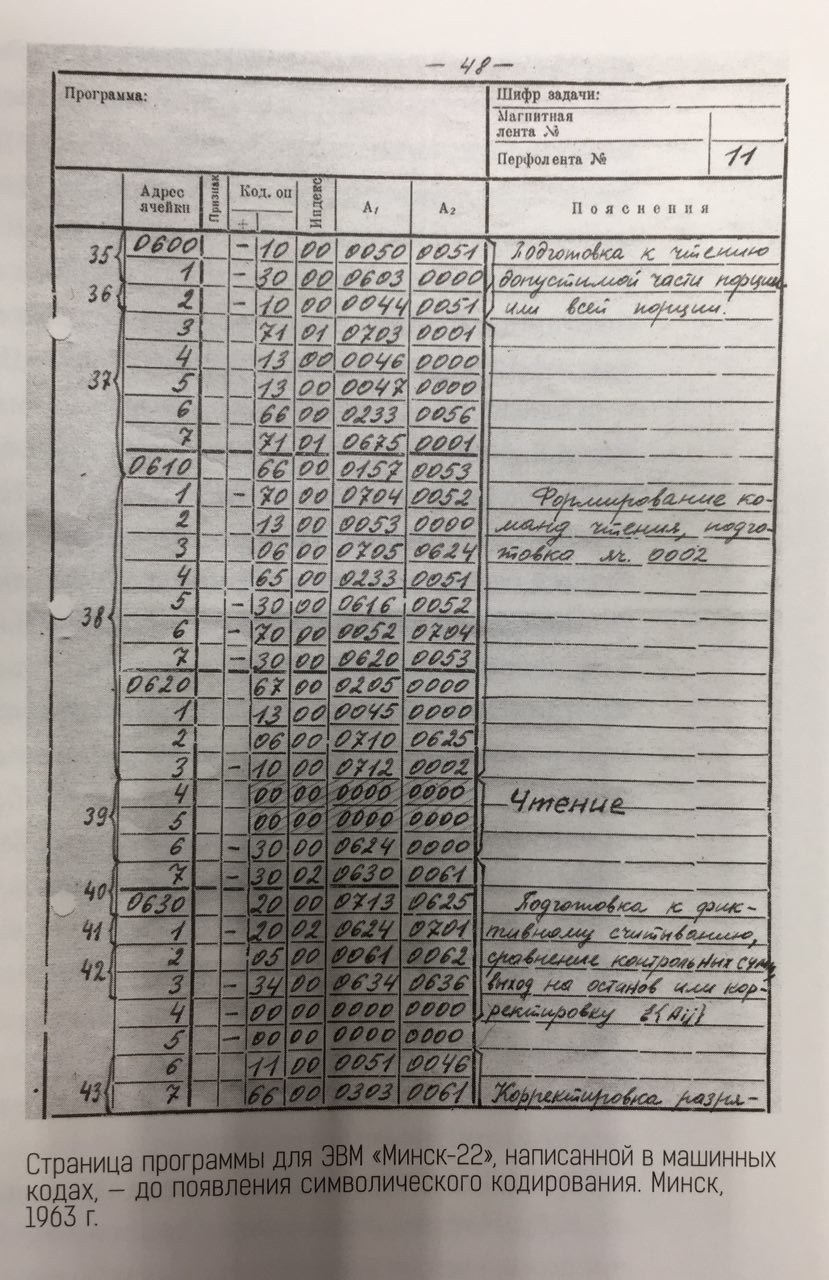 — 48 —
Программа:
Шифр задачи:
Магнитная
лента №
Перфолента № 11
Адрес ячейки Признак Код. оп Индекс А₁ А₂ Пояснения
+
35 0600 - 10 00 0050 0051 Подготовка к чтению
1 - 30 00 0603 0000 допустимой части порции
36 2 - 10 00 0044 0051 или всей порции.
3 71 01 0703 0001
4 13 00 0046 0000
37 5 13 00 0047 0000
6 66 00 0233 0056
7 71 01 0675 0001
0610 66 00 0157 0053
1 - 70 00 0704 0052 Формирование ко-
2 13 00 0053 0000 манд чтения, подго-
3 06 00 0705 0624 товка яч. 0002
4 65 00 0233 0051
38 5 - 30 00 0616 0052
6 - 70 00 0052 0704
7 - 30 00 0620 0053
0620 67 00 0205 0000
1 13 00 0045 0000
2 06 00 0710 0625
3 - 10 00 0712 0002
4 00 00 0000 0000 Чтение
39 5 00 00 0000 0000
6 - 30 00 0624 0000
40 7 - 30 02 0630 0061
0630 20 00 0713 0625 Подготовка к фик-
41 1 - 20 02 0624 0701 тивному считыванию,
42 2 05 00 0061 0062 сравнение контрольных сумм,
3 - 34 00 0634 0636 выход на останов или кор-
4 - 00 00 0000 0000 ректировку {Aij}
5 - 00 00 0000 0000
6 11 00 0051 0046
43 7 66 00 0303 0061 Корректировка разря-
Страница программы для ЭВМ «Минск-22», написанной в машинных
кодах, — до появления символического кодирования. Минск,
1963 г.